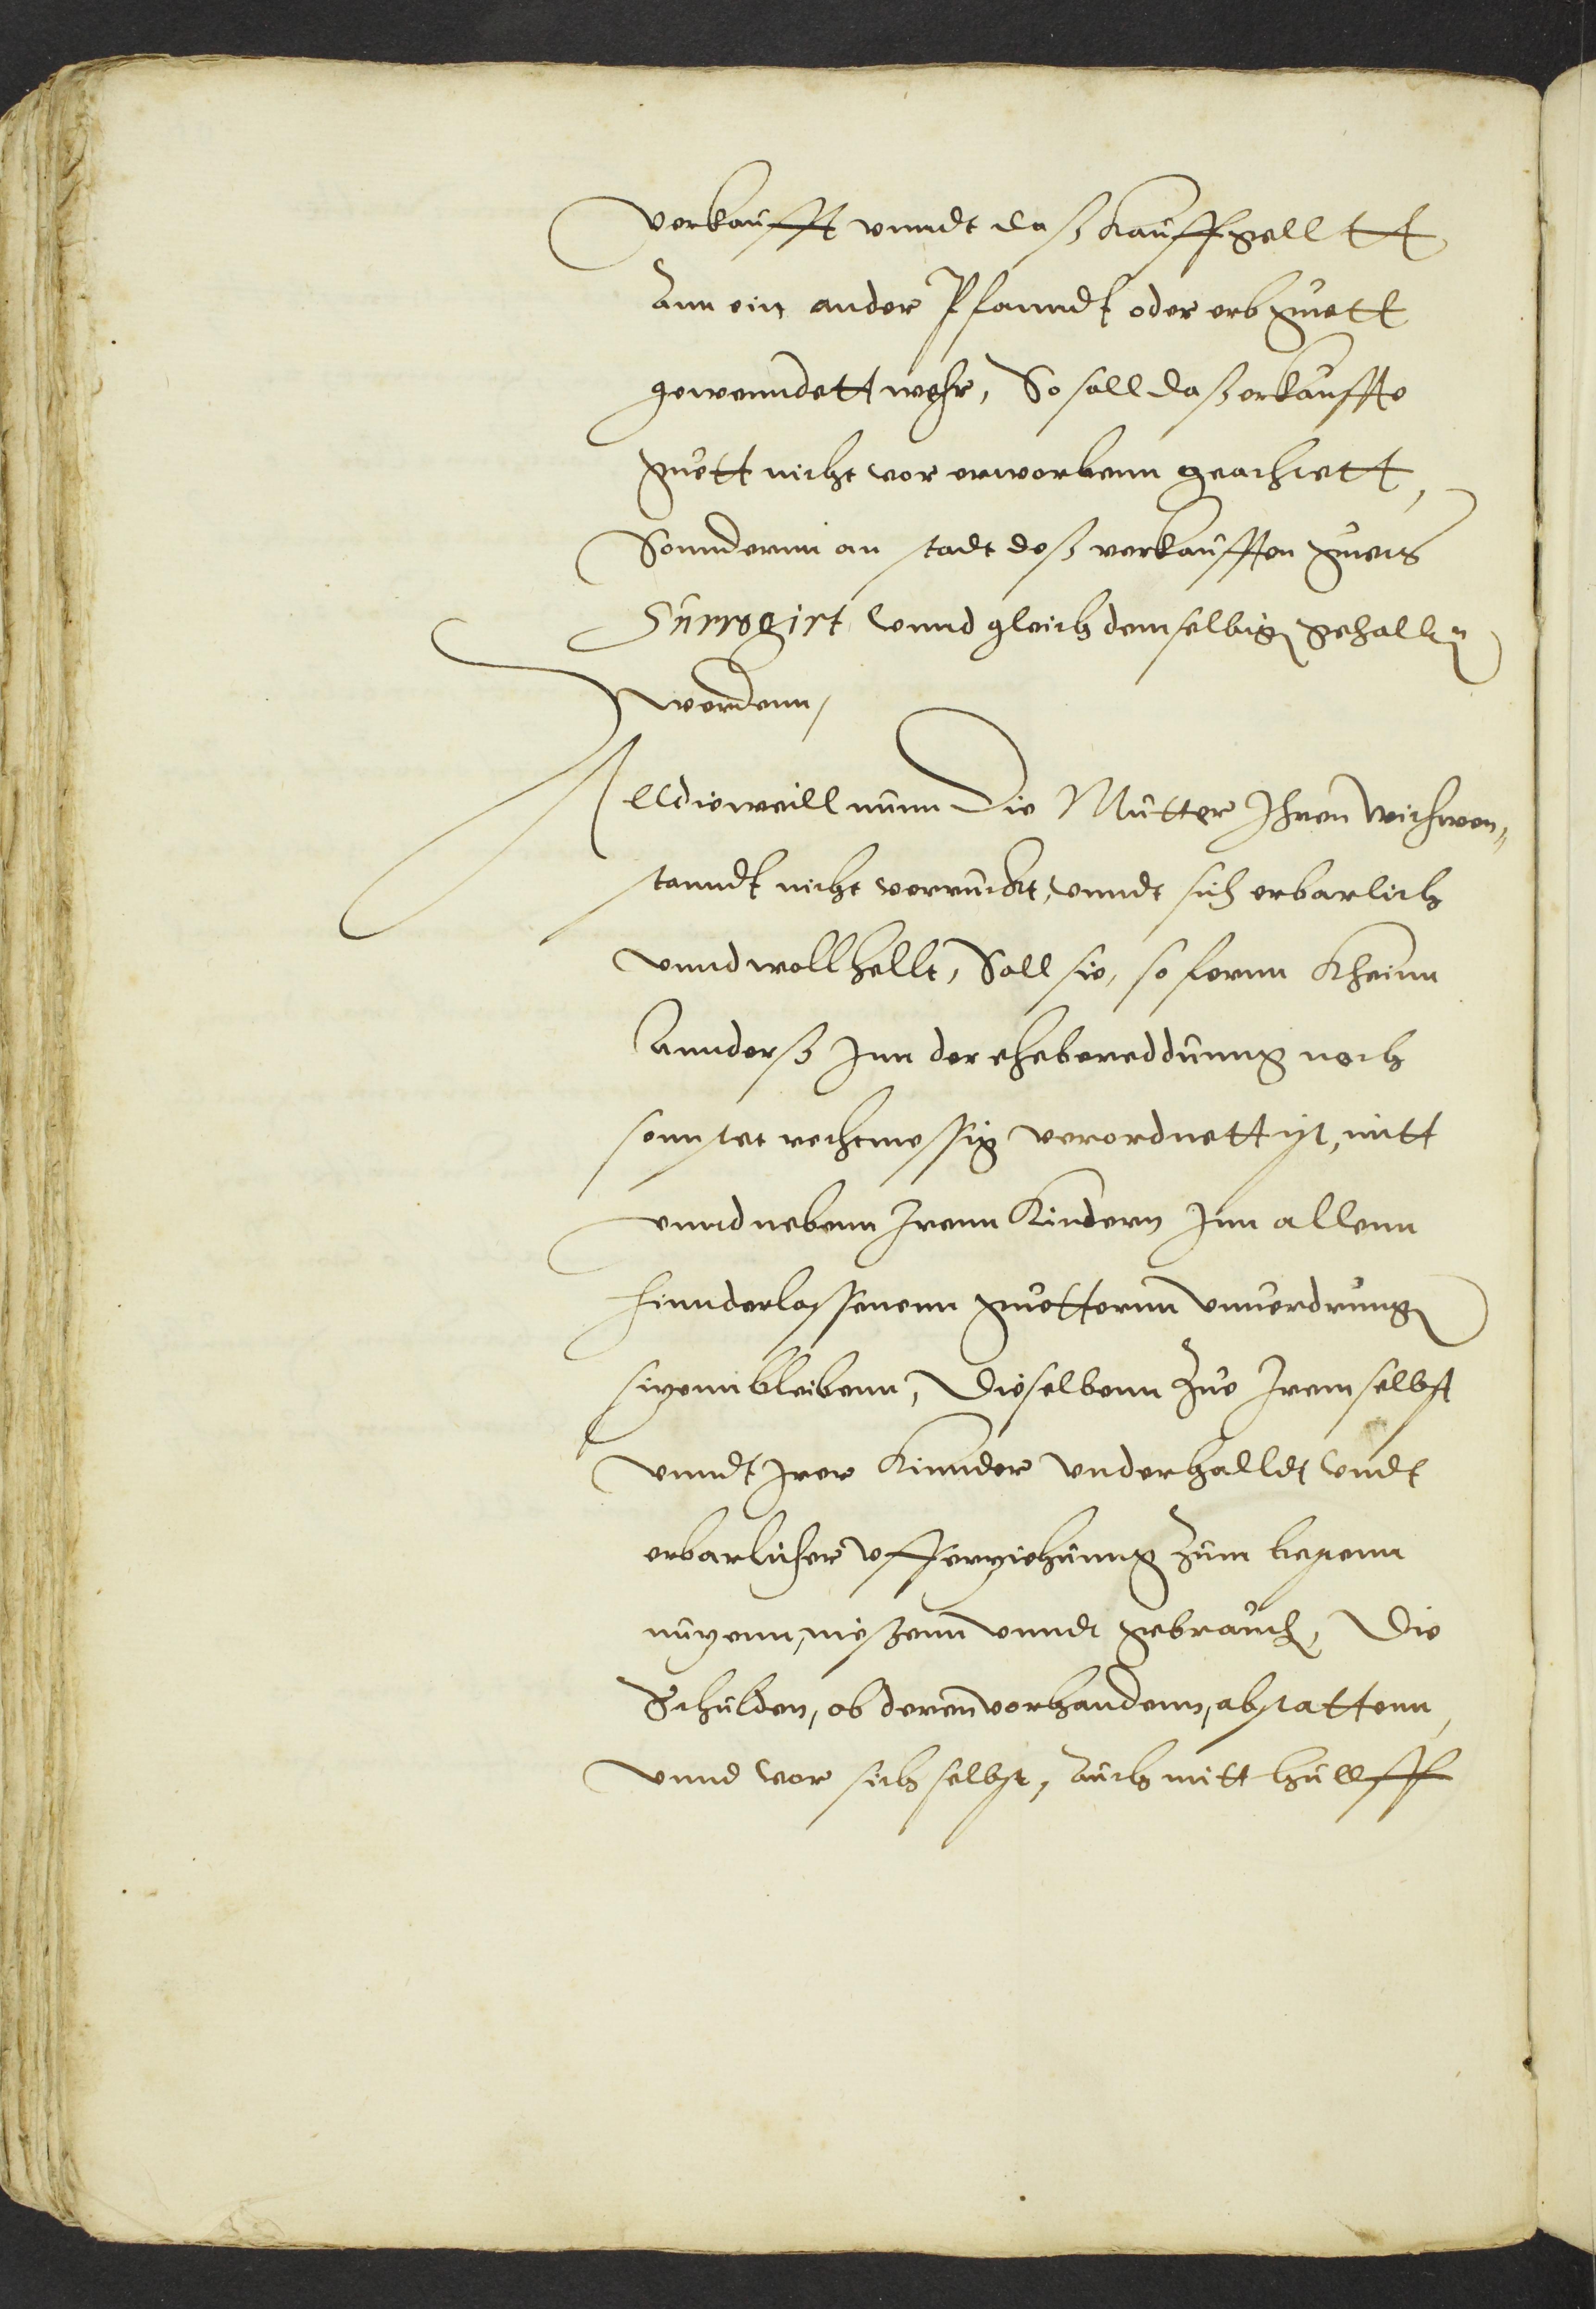 verkaufft vnndt daß Kauffgelltt
Ann ein ander Pfanndt oder erb guett
gewenndett wehr, So soll daß erkauffte
guett nicht vor erworbenn geachtett,
Sonndernn an stadt deß verkaufften guets
Surrogirt vnnd gleich demselbigen gehallten
werdenn,
Alldieweill nunn die Mutter Ihren withwen„
stanndt nicht verruckt, vnndt sich erbarlich
vnnd woll hellt, Soll sie, so fernn Kheinn
Annderß Inn der ehebereddunng noch
sonstet rechtmessig verordnett ist, mitt
vnnd nebenn Irenn Kindern Inn allenn
hinnderlassenenn guetternn vnuerdrungen
sizenn bleibenn, Dieselbenn Zue Irem selbst
vnndt Irer Kinnder vnderhalldt vndt
erbarlicher vfferziehunng Zum bestenn
nuzenn, niessenn vnndt gebrauchen, Die
Schulden, ob deren vorhandenn, abstattenn,
vnnd vor sich selbst, Auch mitt hüllff